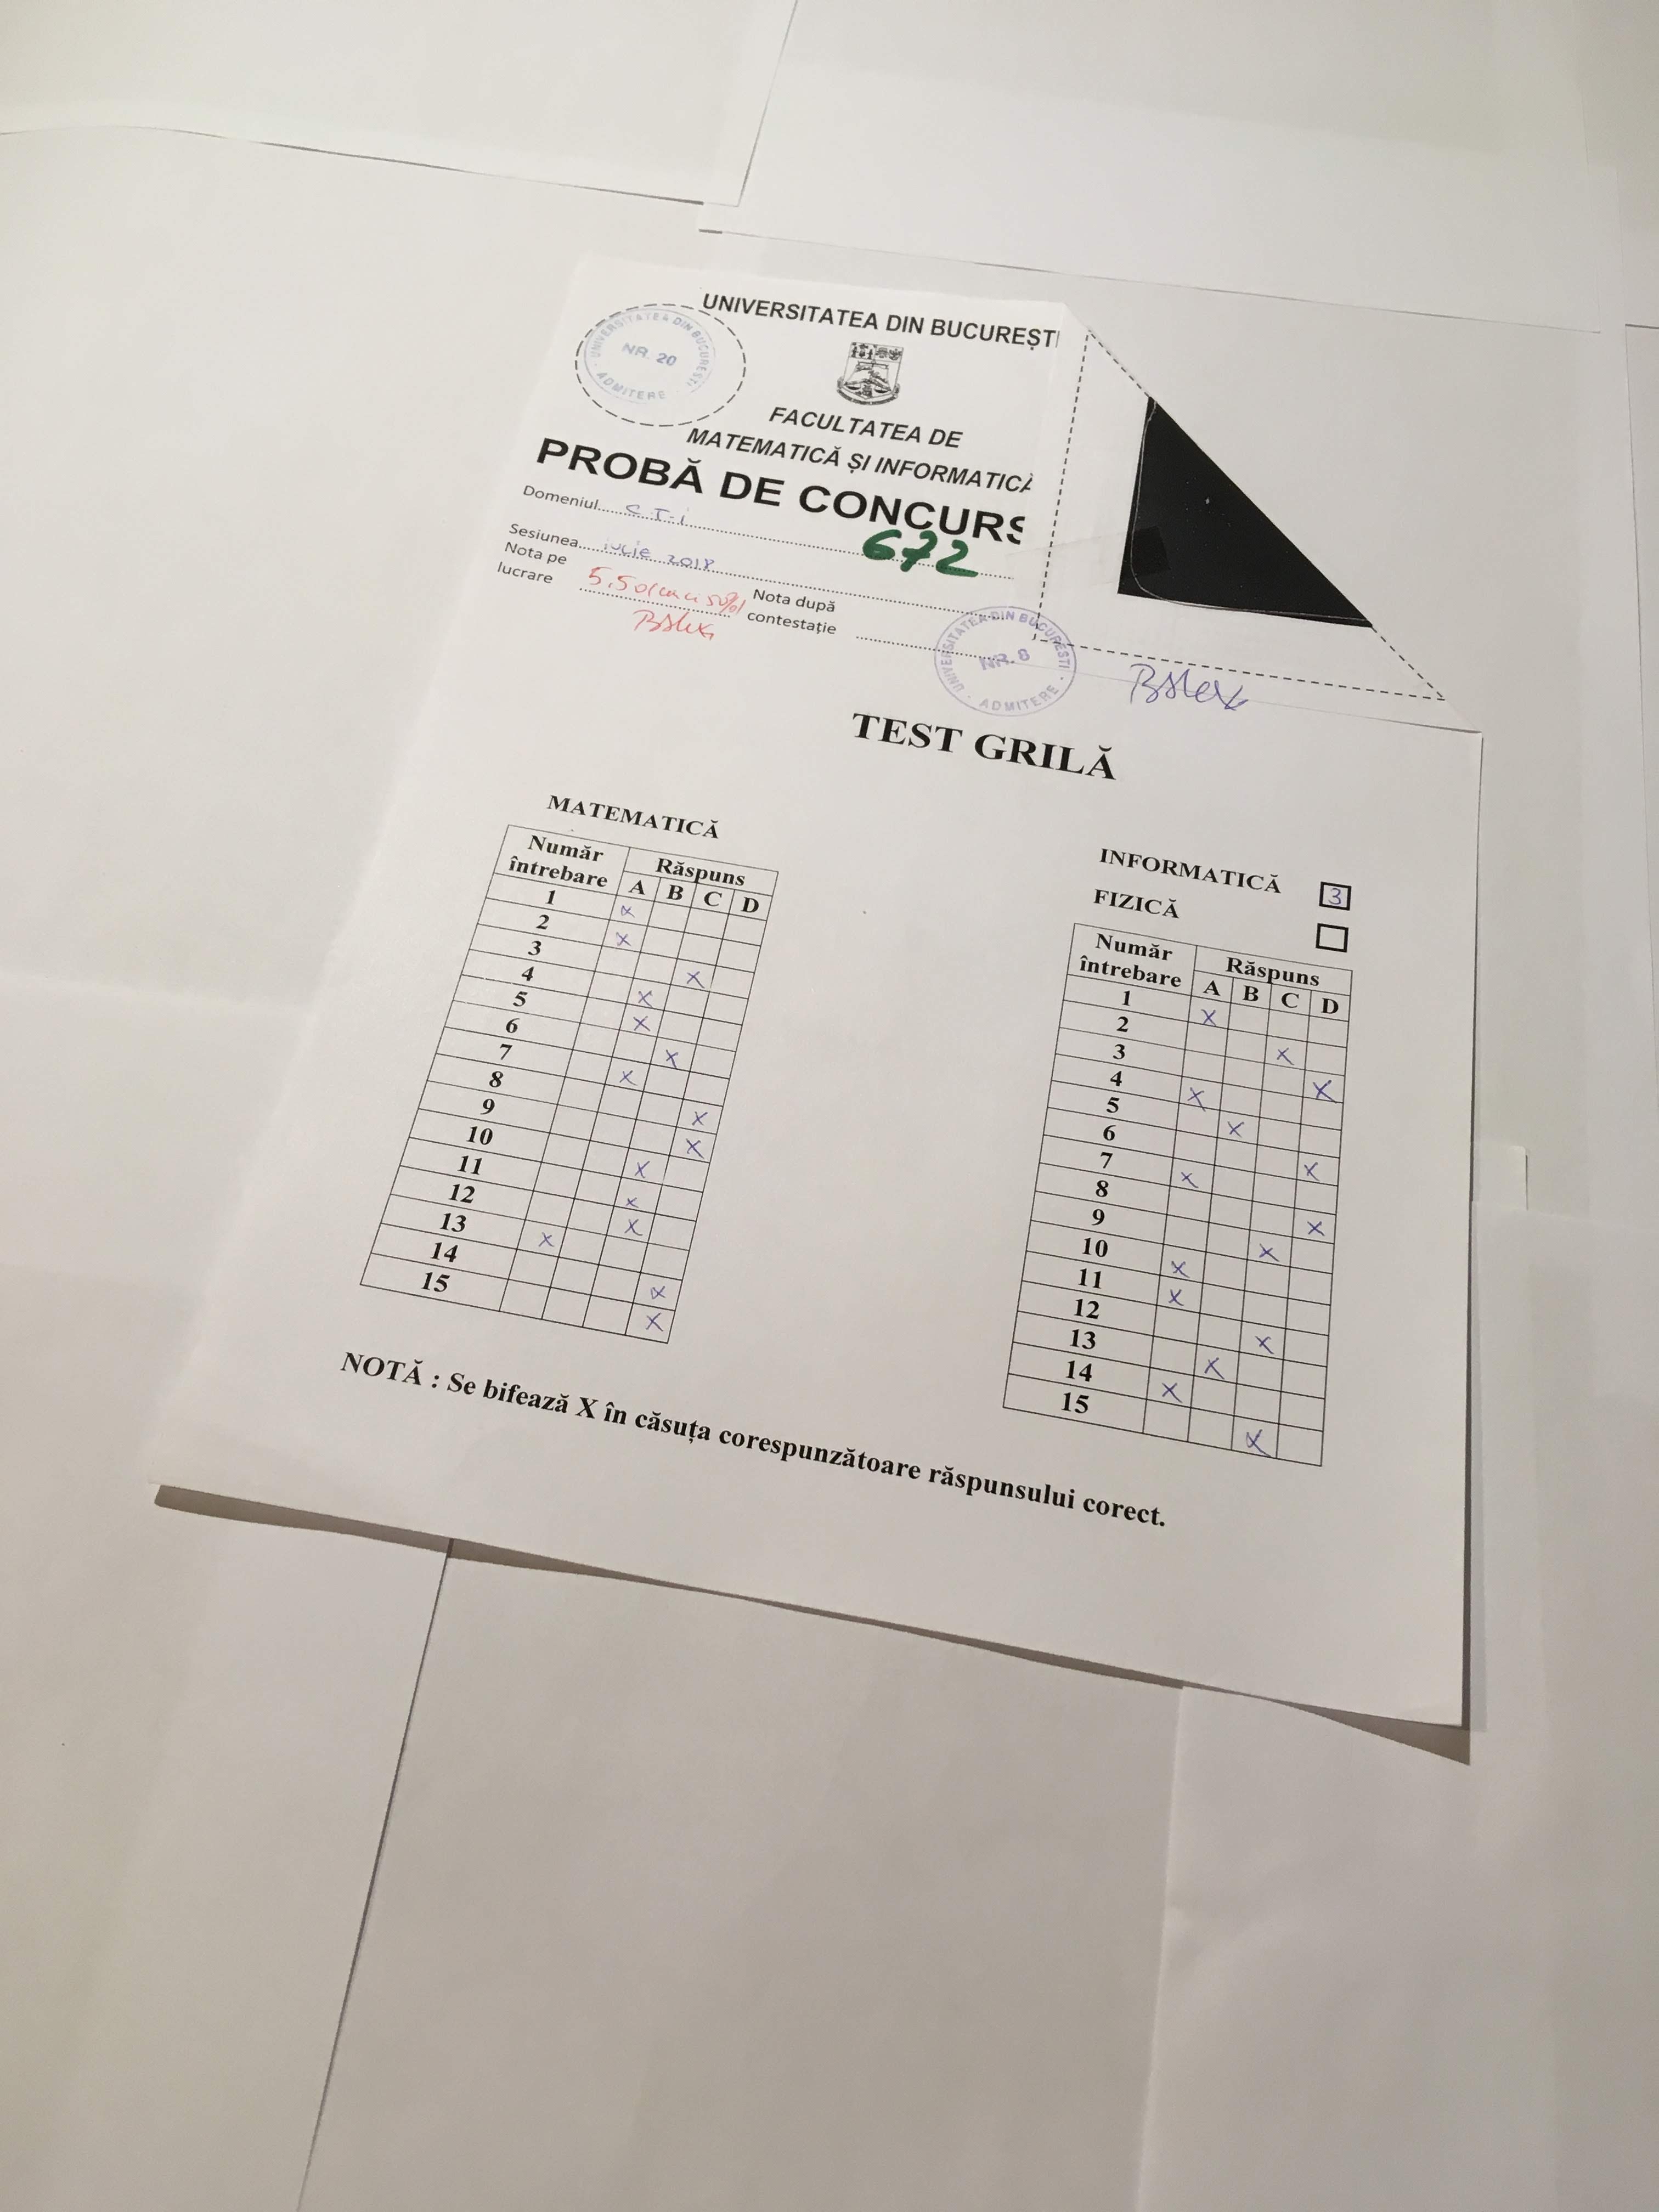 UNIVERSITATEA DIN BUCUREȘTI
UNIVERSITATEA DIN BUCUREȘTI
NR. 20
ADMITERE
FACULTATEA DE
MATEMATICĂ ȘI INFORMATICĂ
PROBĂ DE CONCURS
Domeniul CTI
672
Sesiunea iulie 2018
Nota pe lucrare 5,50
Nota după contestație
UNIVERSITATEA DIN BUCURESTI
NR. 8
ADMITERE
TEST GRILĂ
MATEMATICĂ
Număr întrebare Răspuns
A B C D
1 x
2 x
3 x
4 x
5 x
6 x
7 x
8 x
9 x
10 x
11 x
12 x
13 x
14 x
15 x
INFORMATICĂ 3
FIZICĂ
Număr întrebare Răspuns
A B C D
1 x
2 x
3 x
4 x
5 x
6 x
7 x
8 x
9 x
10 x
11 x
12 x
13 x
14 x
15 x
NOTĂ : Se bifează X în căsuța corespunzătoare răspunsului corect.